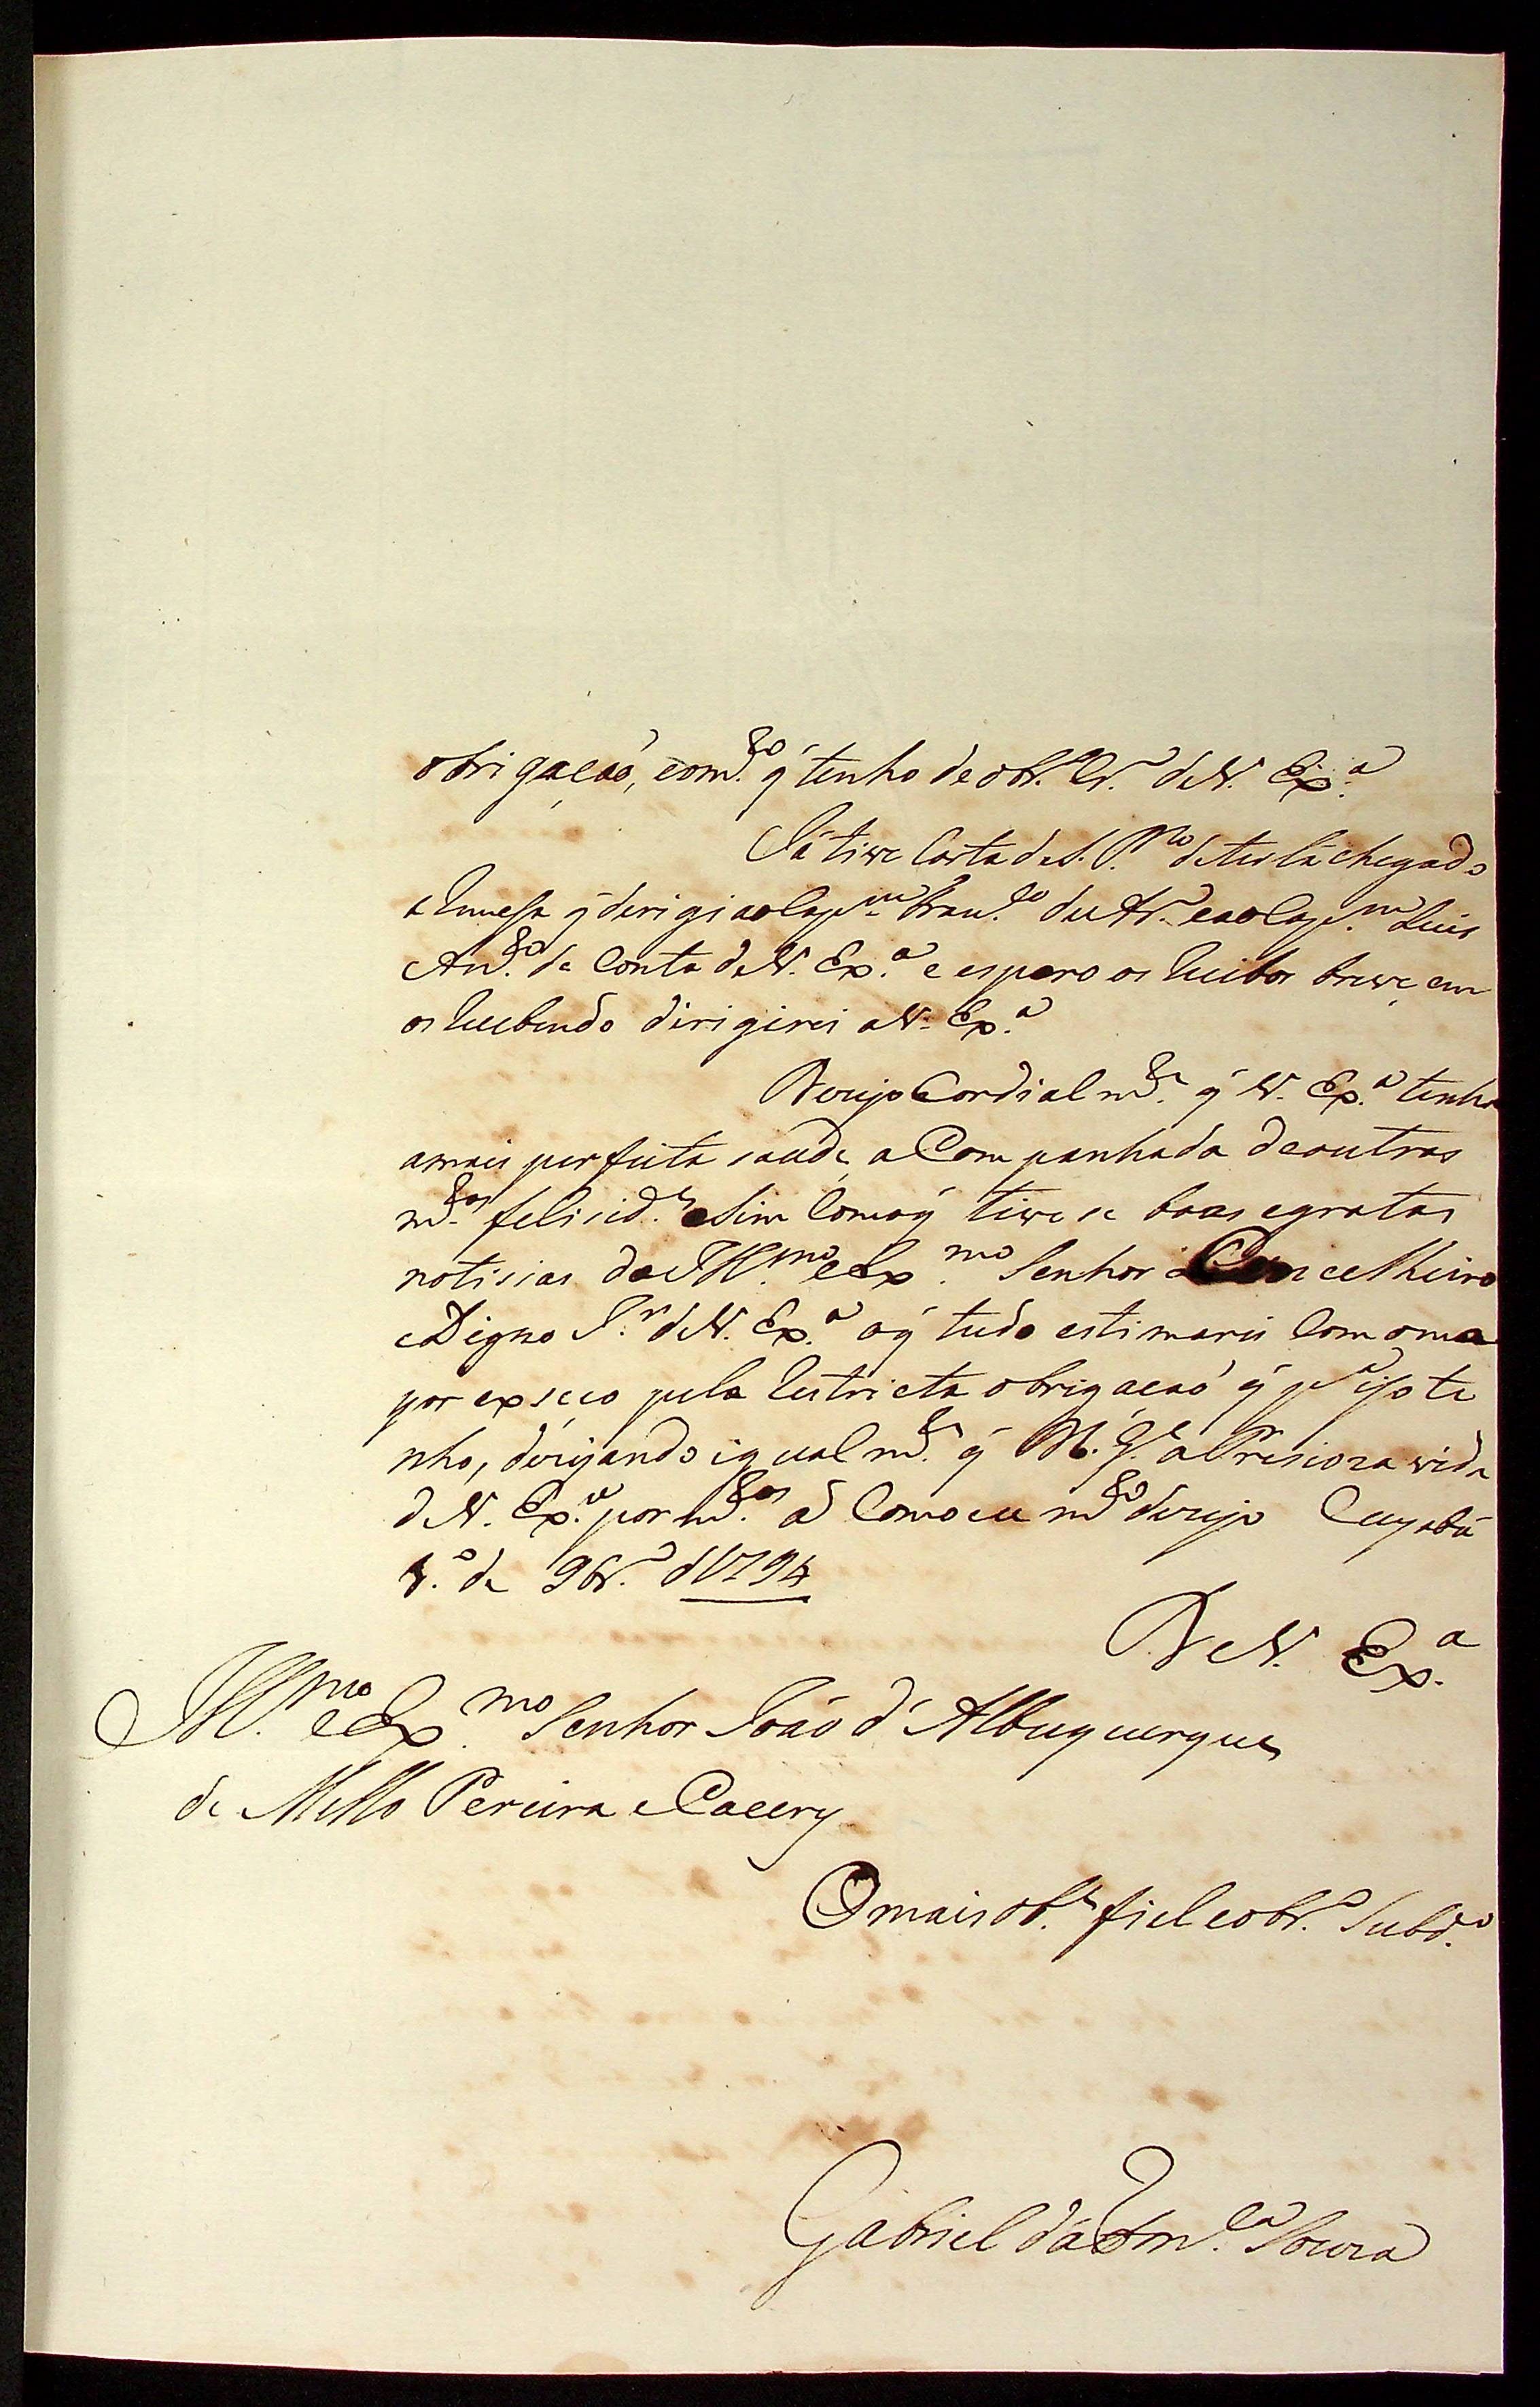 obrigação, e om.do q̃ tenho de ob.r Cr.o de V. Ex.a
Já tive Carta de S. P.lo de ter lá chegado
a Remeſsa q̃ derigi ao Cap.m Fran.co e ao Cap.m Luis
An.to da Conta de V. Ex.a e espero os Recibos breve, em
os Recebendo dirigirei a V. Ex.a
Dezejo Cordialm.te q̃ V. Ex.a tenha
amais perfeita saude, aCompanhada deoutras
m.tas felisid.es eSim Comoq̃ tivese boas egratas
notisias do Ill.mo e Ex.mo Senhor Concelheiro
e Digno I.r de V. Ex.a oq̃ tudo estimarei Com o ma
por exseco pela Restricta obrigação q̃ p.a iſo te
nho, dezejando igualm.te q̃ N. S.r a Presioza vida
de V. Ex.a por m.tos a.s Como eu m.to dezejo Cuyabá
1.o de 9br.o de 1794
De V. Ex.a
Ill.mo e Ex.mo Senhor João d'Albuquerques
de Mello Pereira e Cacerǝs
O mais ob.te fiel e obr.o Subd.o
Gabriel da Fon.ca Souza